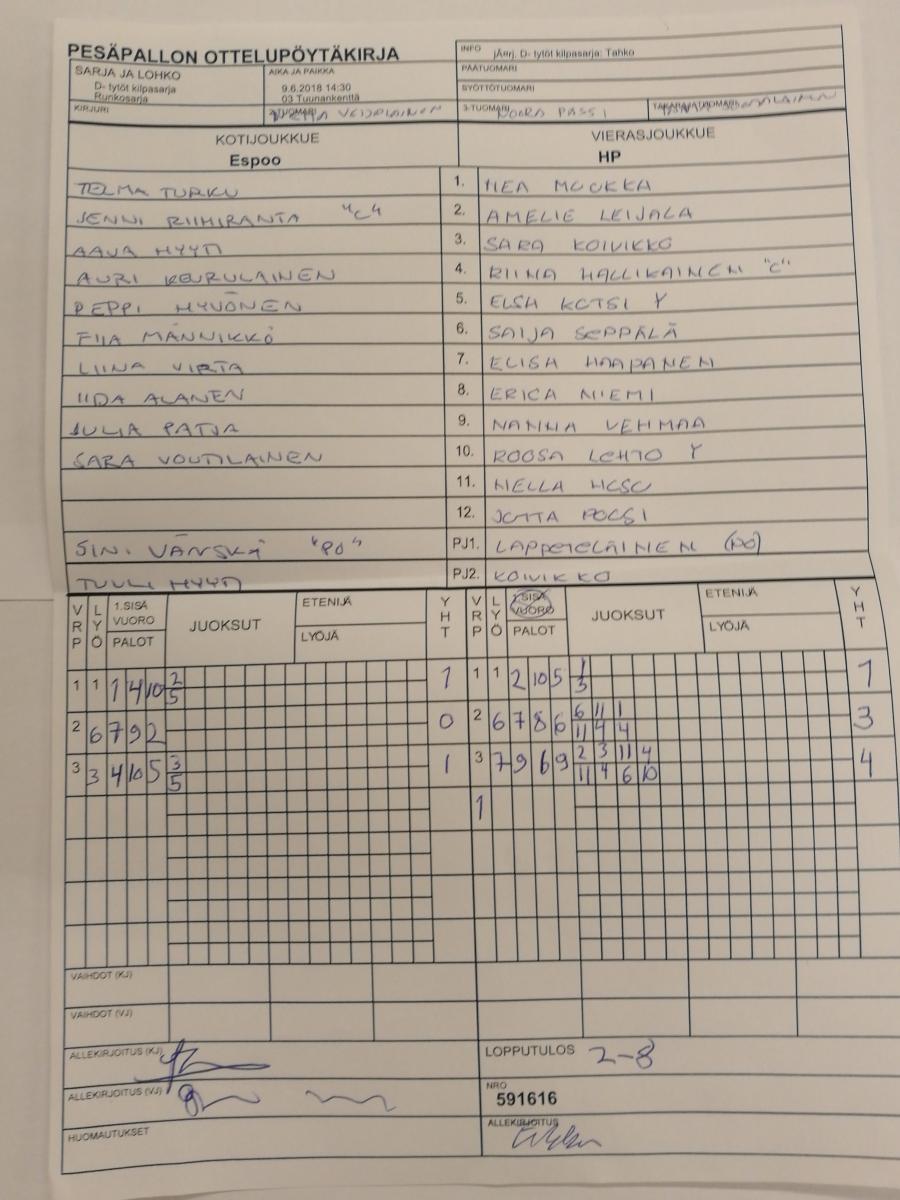 PESÄPALLON OTTELUPÖYTÄKIRJA
INFO jÄarj. D- tytöt kilpasarja: Tahko
PÄÄTUOMARI
SYÖTTÖTUOMARI
SARJA JA LOHKO
D- tytöt kilpasarja
Runkosarja
AIKA JA PAIKKA
9.6.2018 14:30
03 Tuunankenttä
KIRJURI
2-TUOMARI
3-TUOMARI NOORA PASSI
TAKARAJATUOMARI
KOTIJOUKKUE
Espoo
VIERASJOUKKUE
HP
TELMA TURKU 1. NEA MUUKKA
JENNI RIIHIRANTA "C" 2. AMELIE LEIJALA
AAVA HYYTI 3. SARA KOIVIKKO
AURI KEURULAINEN 4. RIINA HALLIKAINEN "C"
PEPPI HYVÖNEN 5. ELSA KOTSI Y
FIIA MÄNNIKKÖ 6. SAIJA SEPPÄLÄ
LIINA VIRTA 7. ELISA HAAPANEN
IIDA ALANEN 8. ERICA NIEMI
JULIA PATJA 9. NANNA VEHMAA
SARA VOUTILAINEN 10. ROOSA LEHTO Y
11. NELLA
12. JOTTA
SINI VÄNSKÄ "PO" PJ1. LAPPETELÄINEN (PO)
TUULI HYYTI PJ2. KOIVIKKO
VRP LYÖ 1.SISÄ VUORO PALOT JUOKSUT ETENIJÄ LYÖJÄ YHT VRP LYÖ 1.SISÄ VUORO PALOT JUOKSUT ETENIJÄ LYÖJÄ YHT
1 1 1 4 10 2/5 1 1 1 2 10 5 1/3 1
2 6 7 9 2 0 2 6 7 8 6 6/11 11/4 1/4 3
3 3 4 10 5 3/5 1 3 7 9 6 9 2/11 3/4 11/6 4/10 4
1
VAIHDOT (KJ)
VAIHDOT (VJ)
ALLEKIRJOITUS (KJ)
LOPPUTULOS 2-8
ALLEKIRJOITUS (VJ)
NRO
591616
HUOMAUTUKSET
ALLEKIRJOITUS